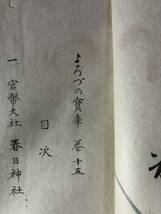 よろづの寶庫 巻十五
目次
一、官幣大社 春日神社